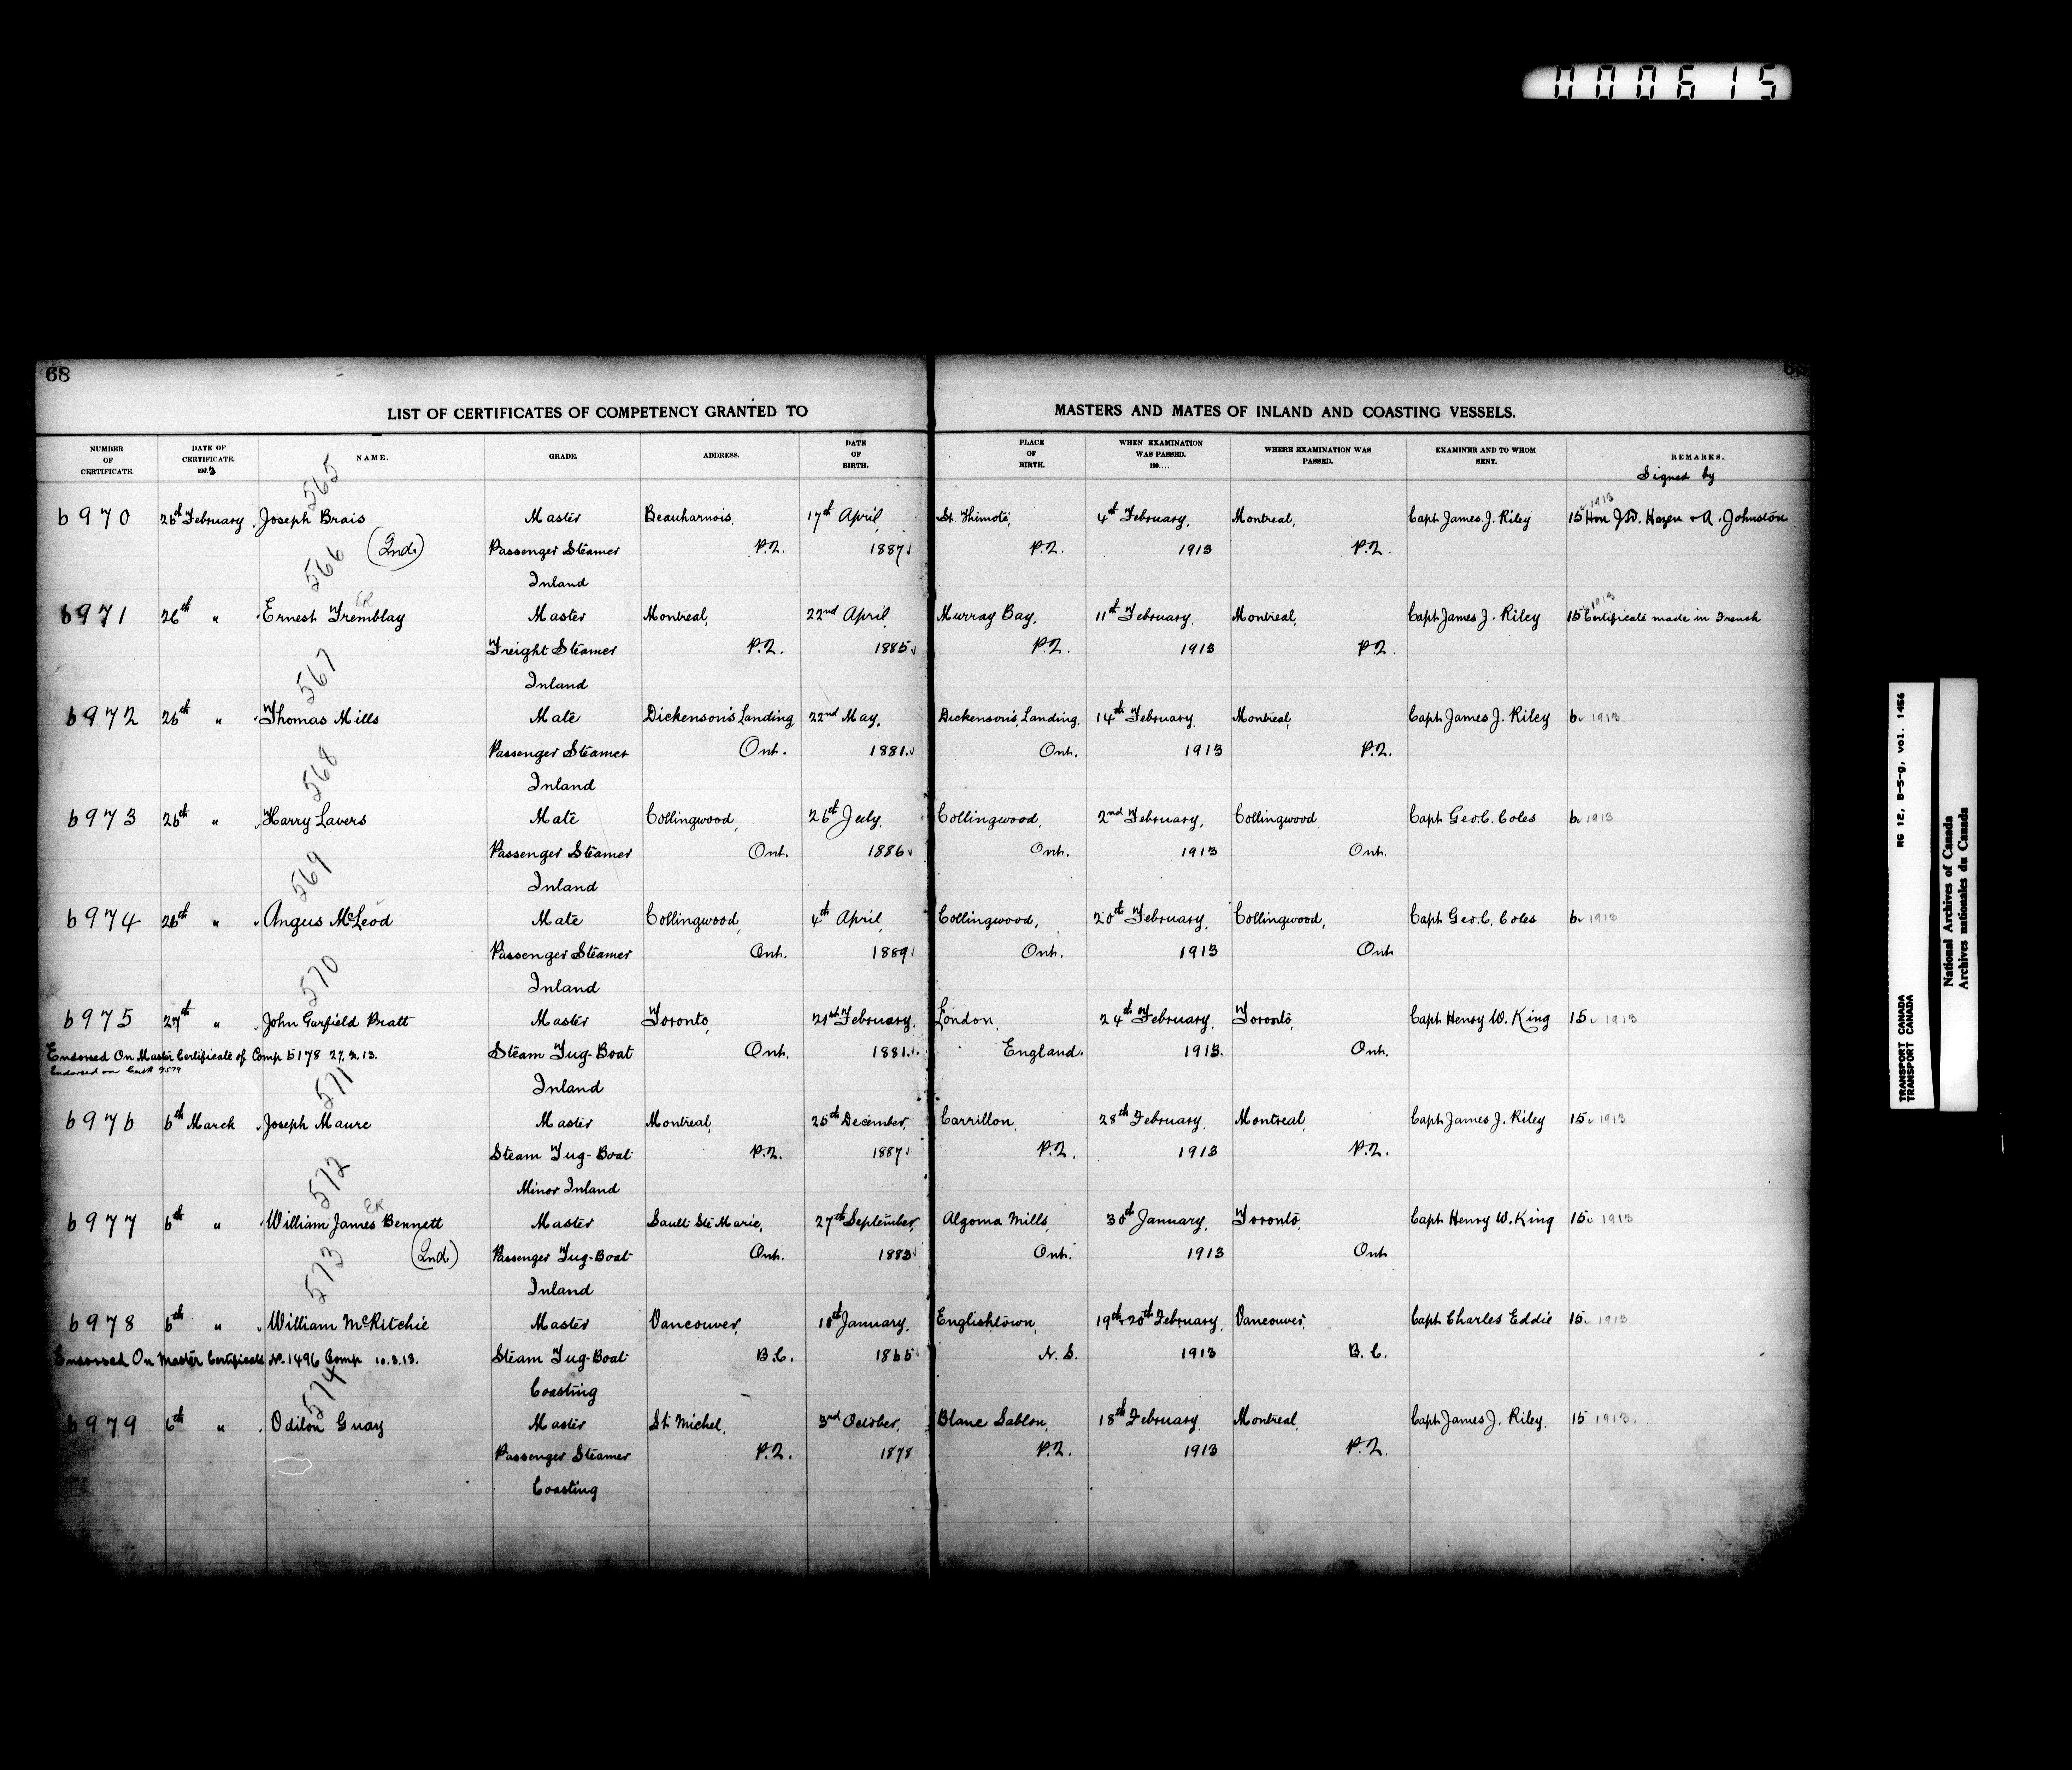 000615
68
LIST OF CERTIFICATES OF COMPETENCY GRANTED TO MASTERS AND MATES OF INLAND AND COASTING VESSELS.
NUMBER OF CERTIFICATE. DATE OF CERTIFICATE. 1913 NAME. GRADE. ADDRESS. DATE OF BIRTH. PLACE OF BIRTH. WHEN EXAMINATION WAS PASSED. 190.... WHERE EXAMINATION WAS PASSED. EXAMINER AND TO WHOM SENT. REMARKS.
Signed by
565
6970 26th February Joseph Brais Master Beauharnois, 17th April, St. Thimoté, 4th February, Montreal, Capt James J. Riley 15 1913 Hon J.D. Hazen & A. Johnston
(Ind.) Passenger Steamer P.Q. 1887 P.Q. 1913 P.Q.
Inland
566
6971 26th " Ernest Tremblay ER Master Montreal, 22nd April Murray Bay, 11th February, Montreal, Capt James J. Riley 15 1913 Certificate made in French
Freight Steamer P.Q. 1885 P.Q. 1913 P.Q.
Inland
567
6972 26th " Thomas Mills Mate Dickenson's Landing 22nd May, Dickenson's Landing, 14th February Montreal, Capt James J. Riley 6 1913
Passenger Steamer Ont. 1881 Ont. 1913 P.Q.
Inland
568
6973 26th " Harry Lavers Mate Collingwood, 26th July, Collingwood, 2nd February, Collingwood Capt Geo. C. Coles 6 1913
Passenger Steamer Ont. 1886 Ont. 1913 Ont.
Inland
569
6974 26th " Angus McLeod Mate Collingwood, 4th April Collingwood, 20th February, Collingwood, Capt Geo. C. Coles 6 1913
Passenger Steamer Ont. 1889 Ont. 1913 Ont
Inland
570
6975 27th " John Garfield Pratt Master Toronto, 21st February, London, 24th February, Toronto, Capt Henry W. King 15 1913
Endorsed On Master Certificate of Comp 5178 27.2.13. Steam Tug-Boat Ont. 1881 England. 1913. Ont.
Endorsed on Cert# 9579
Inland
571
6976 6th March Joseph Maure Master Montreal, 25th December, Carrillon, 28th February, Montreal Capt James J. Riley 15 1913
Steam Tug-Boat P.Q. 1887 P.Q. 1913 P.Q.
Minor Inland
572
6977 6th " William James Bennett ER Master Sault Ste Marie, 27th September, Algoma Mills, 30th January, Toronto, Capt Henry W. King 15 1913
(Ind) Passenger Tug-Boat Ont. 1883 Ont. 1913 Ont
Inland
573
6978 6th " William McRitchie Master Vancouver, 10th January, Englishtown, 19th & 20th February, Vancouver, Capt Charles Eddie 15 1913
Endorsed On Master Certificate No. 1496 Comp 10.3.13. Steam Tug-Boat B.C. 1865 N.S. 1913 B.C.
Coasting
574
6979 6th " Odilon Guay Master St. Michel, 3rd October, Blanc Sablon, 18th February, Montreal, Capt James J. Riley. 15 1913.
Passenger Steamer P.Q. 1878 P.Q. 1913 P.Q.
Coasting
RG 12, B-5-g, vol. 1456
TRANSPORT CANADA
TRANSPORT CANADA
National Archives of Canada
Archives nationales du Canada